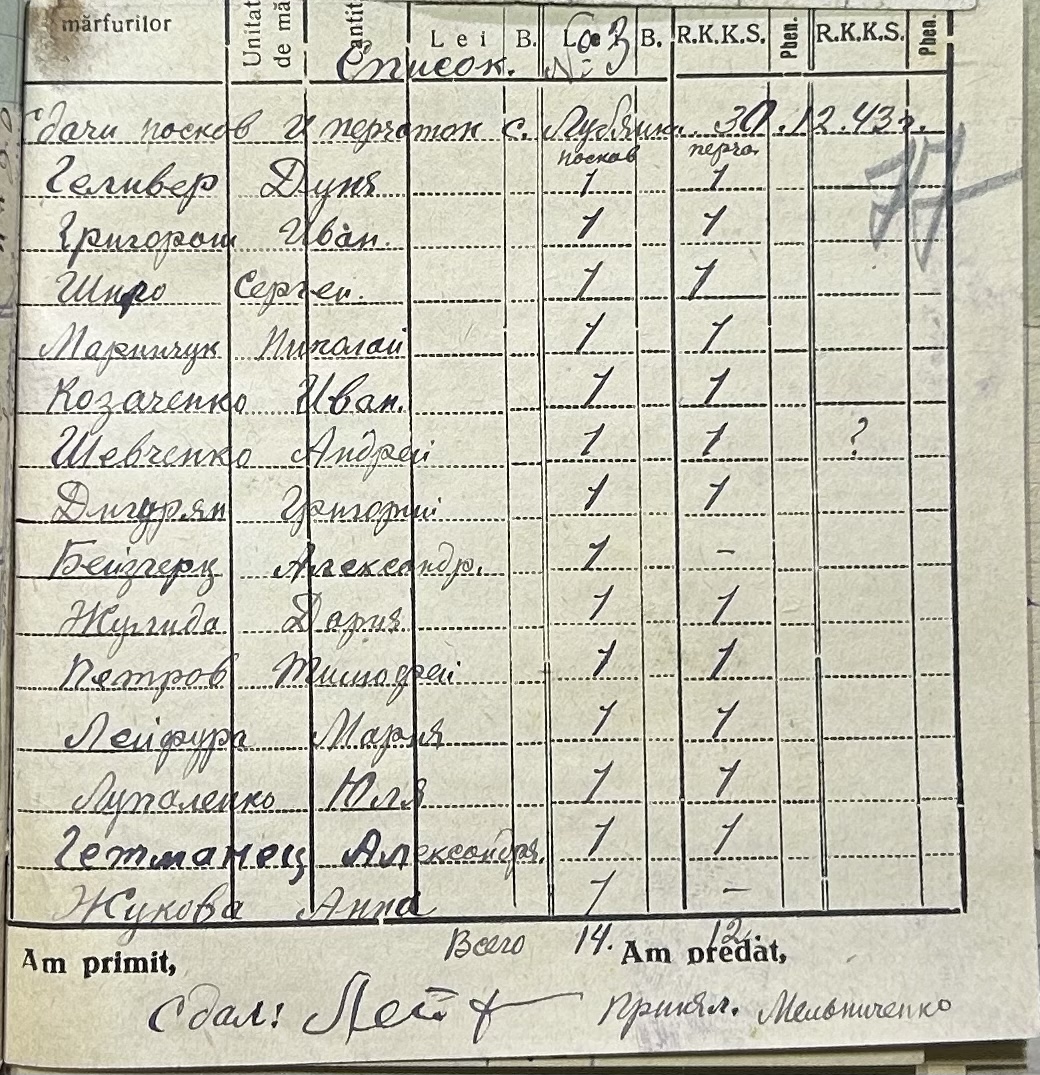 mărfurilor Unitat de mă antit Lei B. Le B. R.K.K.S. Phen. R.K.K.S. Phen.
Список. № 3
Сдачи носков и перчаток с. Лубянки. 30.12.43г.
носков перча.
77
Геливер Дуня 1 1
Григораш Иван. 1 1
Шпро Сергей. 1 1
Маринчук Николай 1 1
Козаченко Иван. 1 1
Шевченко Андрей 1 1 ?
Дигурян Григорий 1 1
Бейзгерц Александр. 1 -
Жулида Дария 1 1
Петров Тимофей 1 1
Лейфура Мария 1 1
Лупаленко Юля 1 1
Гетманец Александра. 1 1
Жукова Анна 1 -
Всего 14. 12.
Am primit, Am predat,
Сдал: Лейф Принял. Мельниченко